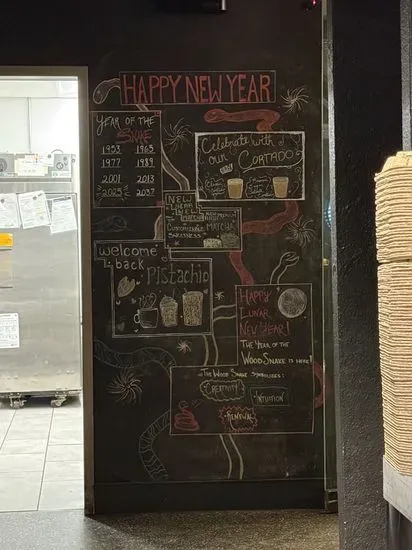 HAPPY NEW YEAR
YEAR OF THE
SNAKE
1953 1965
1977 1989
2001 2013
2025 2037
Celebrate with
our CORTADO
NEW
YEAR
NEW
MATCHA
CUSTOMIZABLE
SWEETNESS
MATCHA
Welcome
back
Pistachio
HAPPY
LUNAR
NEW YEAR!
THE YEAR OF THE
WOOD SNAKE IS HERE!
THE WOOD SNAKE SYMBOLISES:
CREATIVITY
INTUITION
RENEWAL